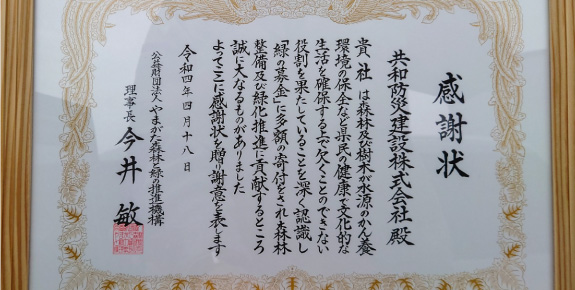 感謝状
共和防災建設株式会社 殿
貴社は森林及び樹木が水源のかん養
環境の保全など県民の健康で文化的な
生活を確保する上で欠くことのできない
役割を果たしていることを深く認識し
「緑の募金」に多額の寄付をされ森林
整備及び緑化推進に貢献するところ
誠に大なるものがありました
よってここに感謝状を贈り謝意を表します
令和四年四月十八日
公益財団法人 やまがた森林と緑の推進機構
理事長 今井 敏